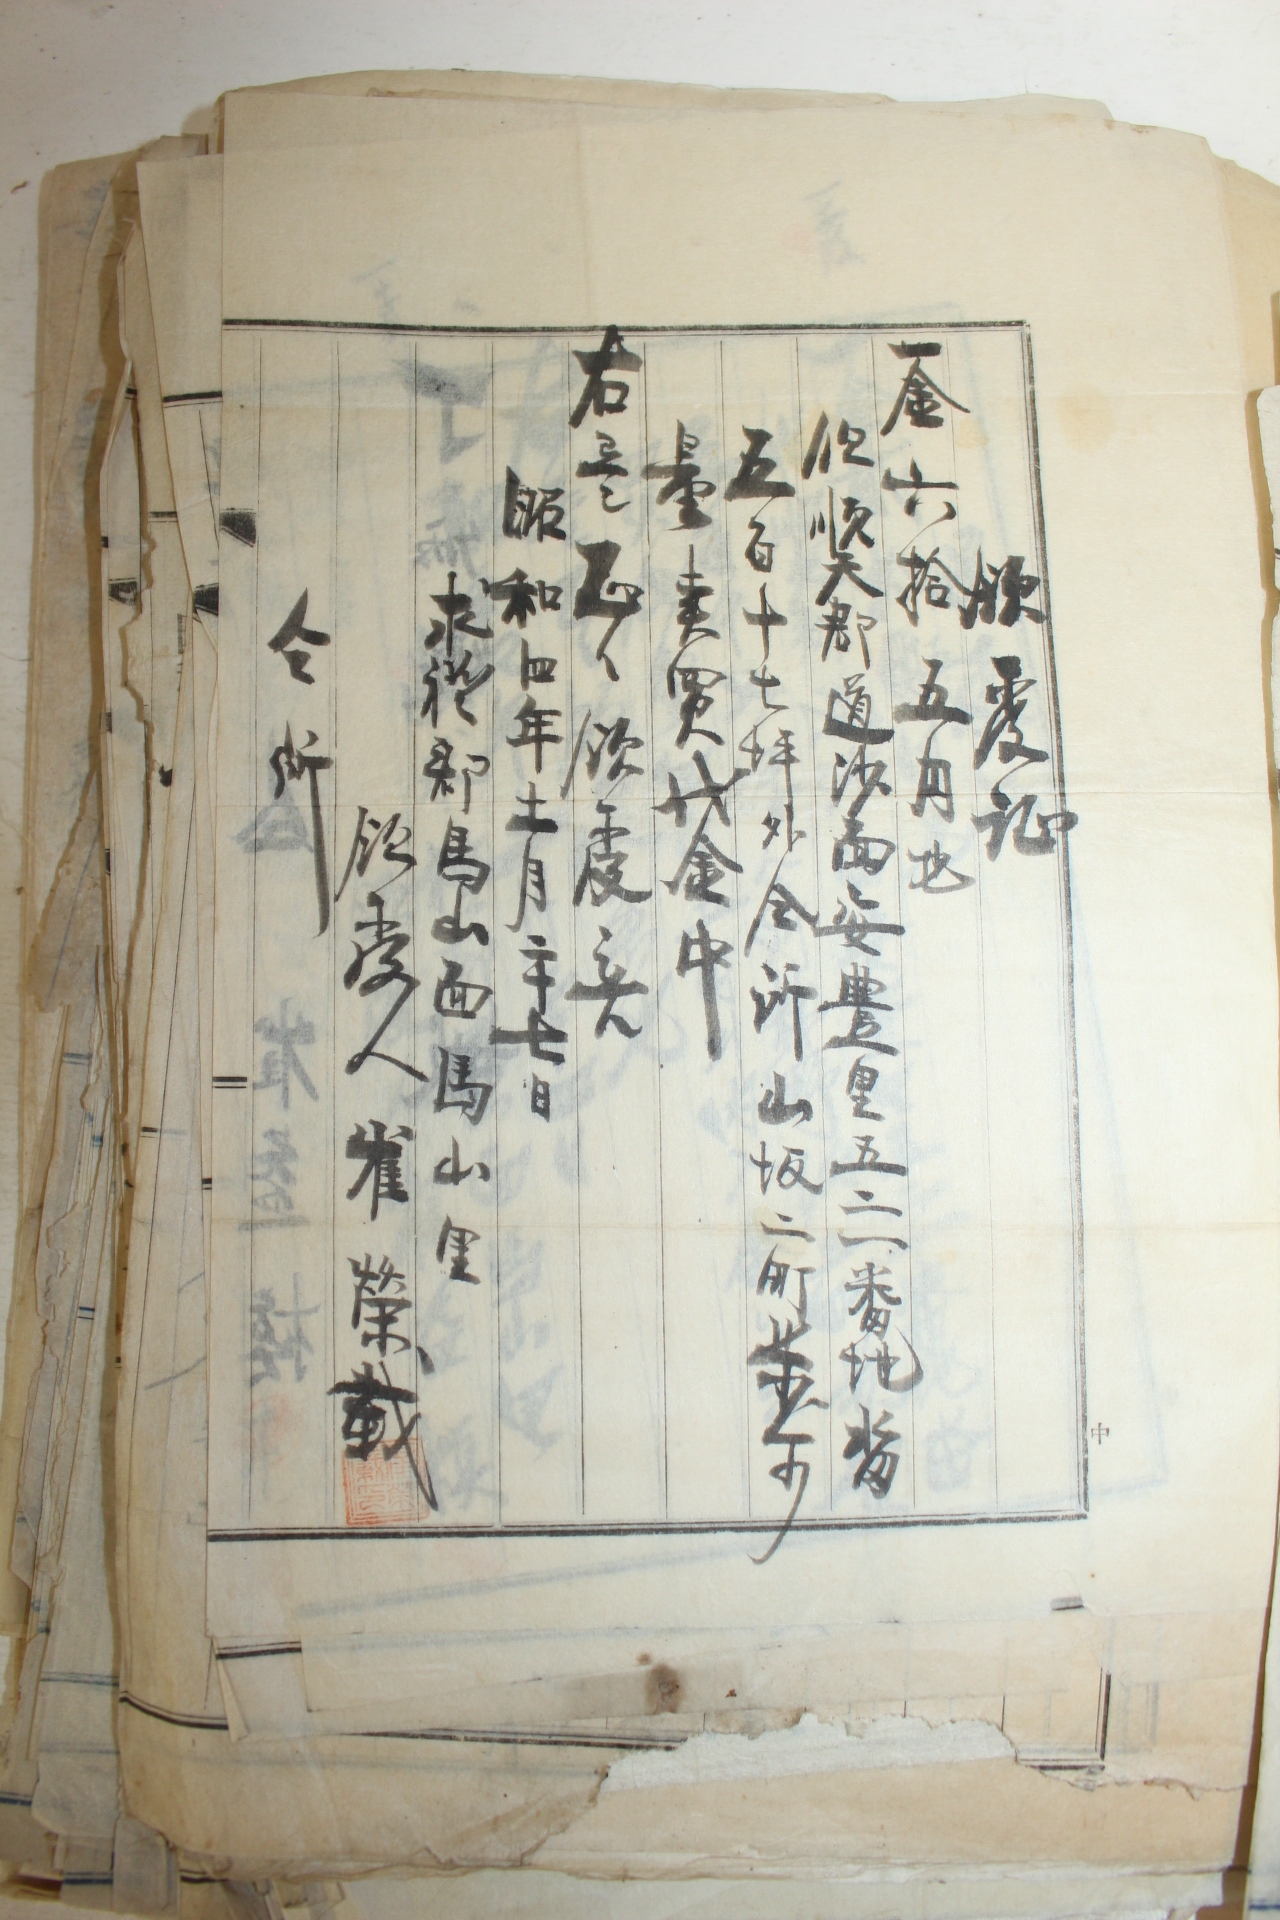 領受証
一金六拾五円也
但順天郡道沙面安豊里五二一番地畓
五百十七坪外仝所山坂二町
量賣買代金中
右를正히領受홈
昭和四年十一月二十七日
求禮郡馬山面馬山里
領受人 崔榮載
仝所
中